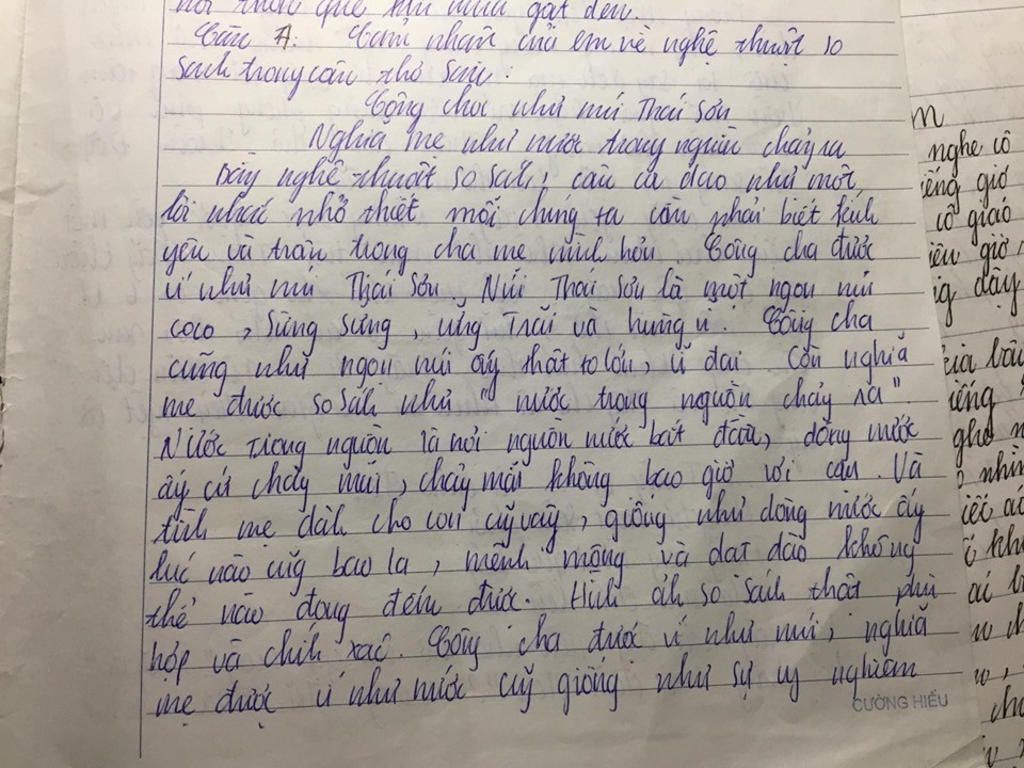 nơi thôn quê khi mùa gặt đến.
Câu A: Cảm nhận của em về nghệ thuật so
sánh trong câu thơ sau:
Công cha như núi Thái Sơn
Nghĩa mẹ như nước trong nguồn chảy ra
Bằng nghệ thuật so sánh, câu ca dao như một
lời nhắc nhở thiết mỗi chúng ta cần phải biết kính
yêu và trân trọng cha mẹ mình hơn. Công cha được
ví như núi Thái Sơn. Núi Thái Sơn là một ngọn núi
cao, sừng sững, vững trãi và hùng vĩ. Công cha
cũng như ngọn núi ấy thật to lớn, vĩ đại. Còn nghĩa
mẹ được so sánh như "nước trong nguồn chảy ra".
Nước trong nguồn là nơi nguồn nước bắt đầu, dòng nước
ấy cứ chảy mãi, chảy mãi không bao giờ vơi cạn. Và
tình mẹ dành cho con cũng vậy, giống như dòng nước ấy
lúc nào cũng bao la, mênh mông và dạt dào không
thể nào đong đếm được. Hình ảnh so sánh thật phù
hợp và chính xác. Công cha được ví như núi, nghĩa
mẹ được ví như nước cũng giống như sự uy nghiêm
CƯỜNG HIẾU
nghe cô
tiếng giơ
cô giáo